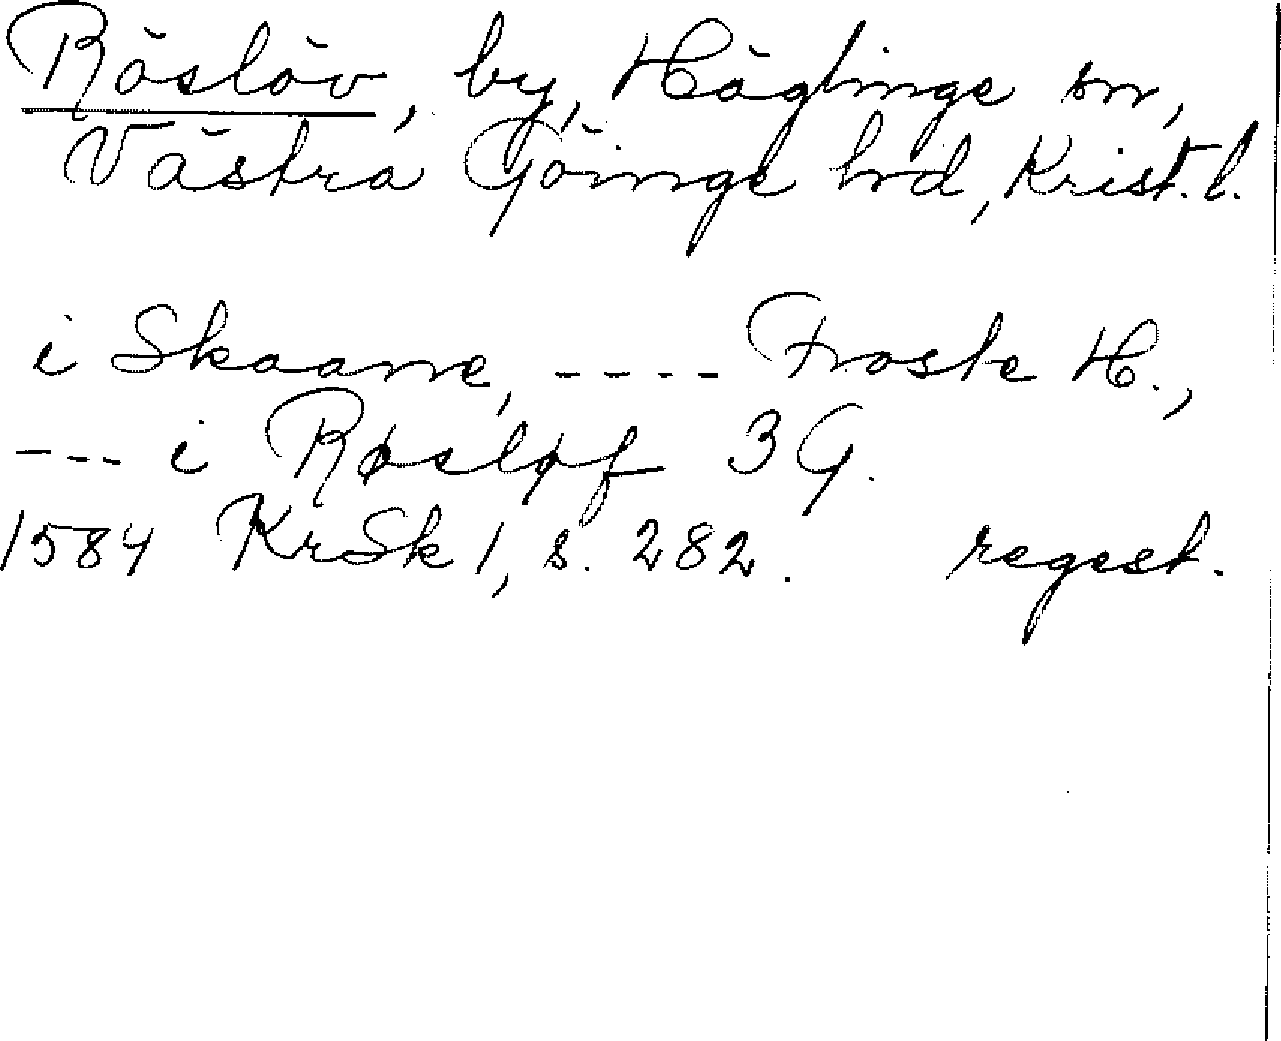 Röslöv, by, Häglinge sn,
Västra Göinge hrd, Krist. l.
i Skaane, ---- Froste H.,
--- i Røsløf 3 G.
1584 KrSk 1, s. 282. regest.